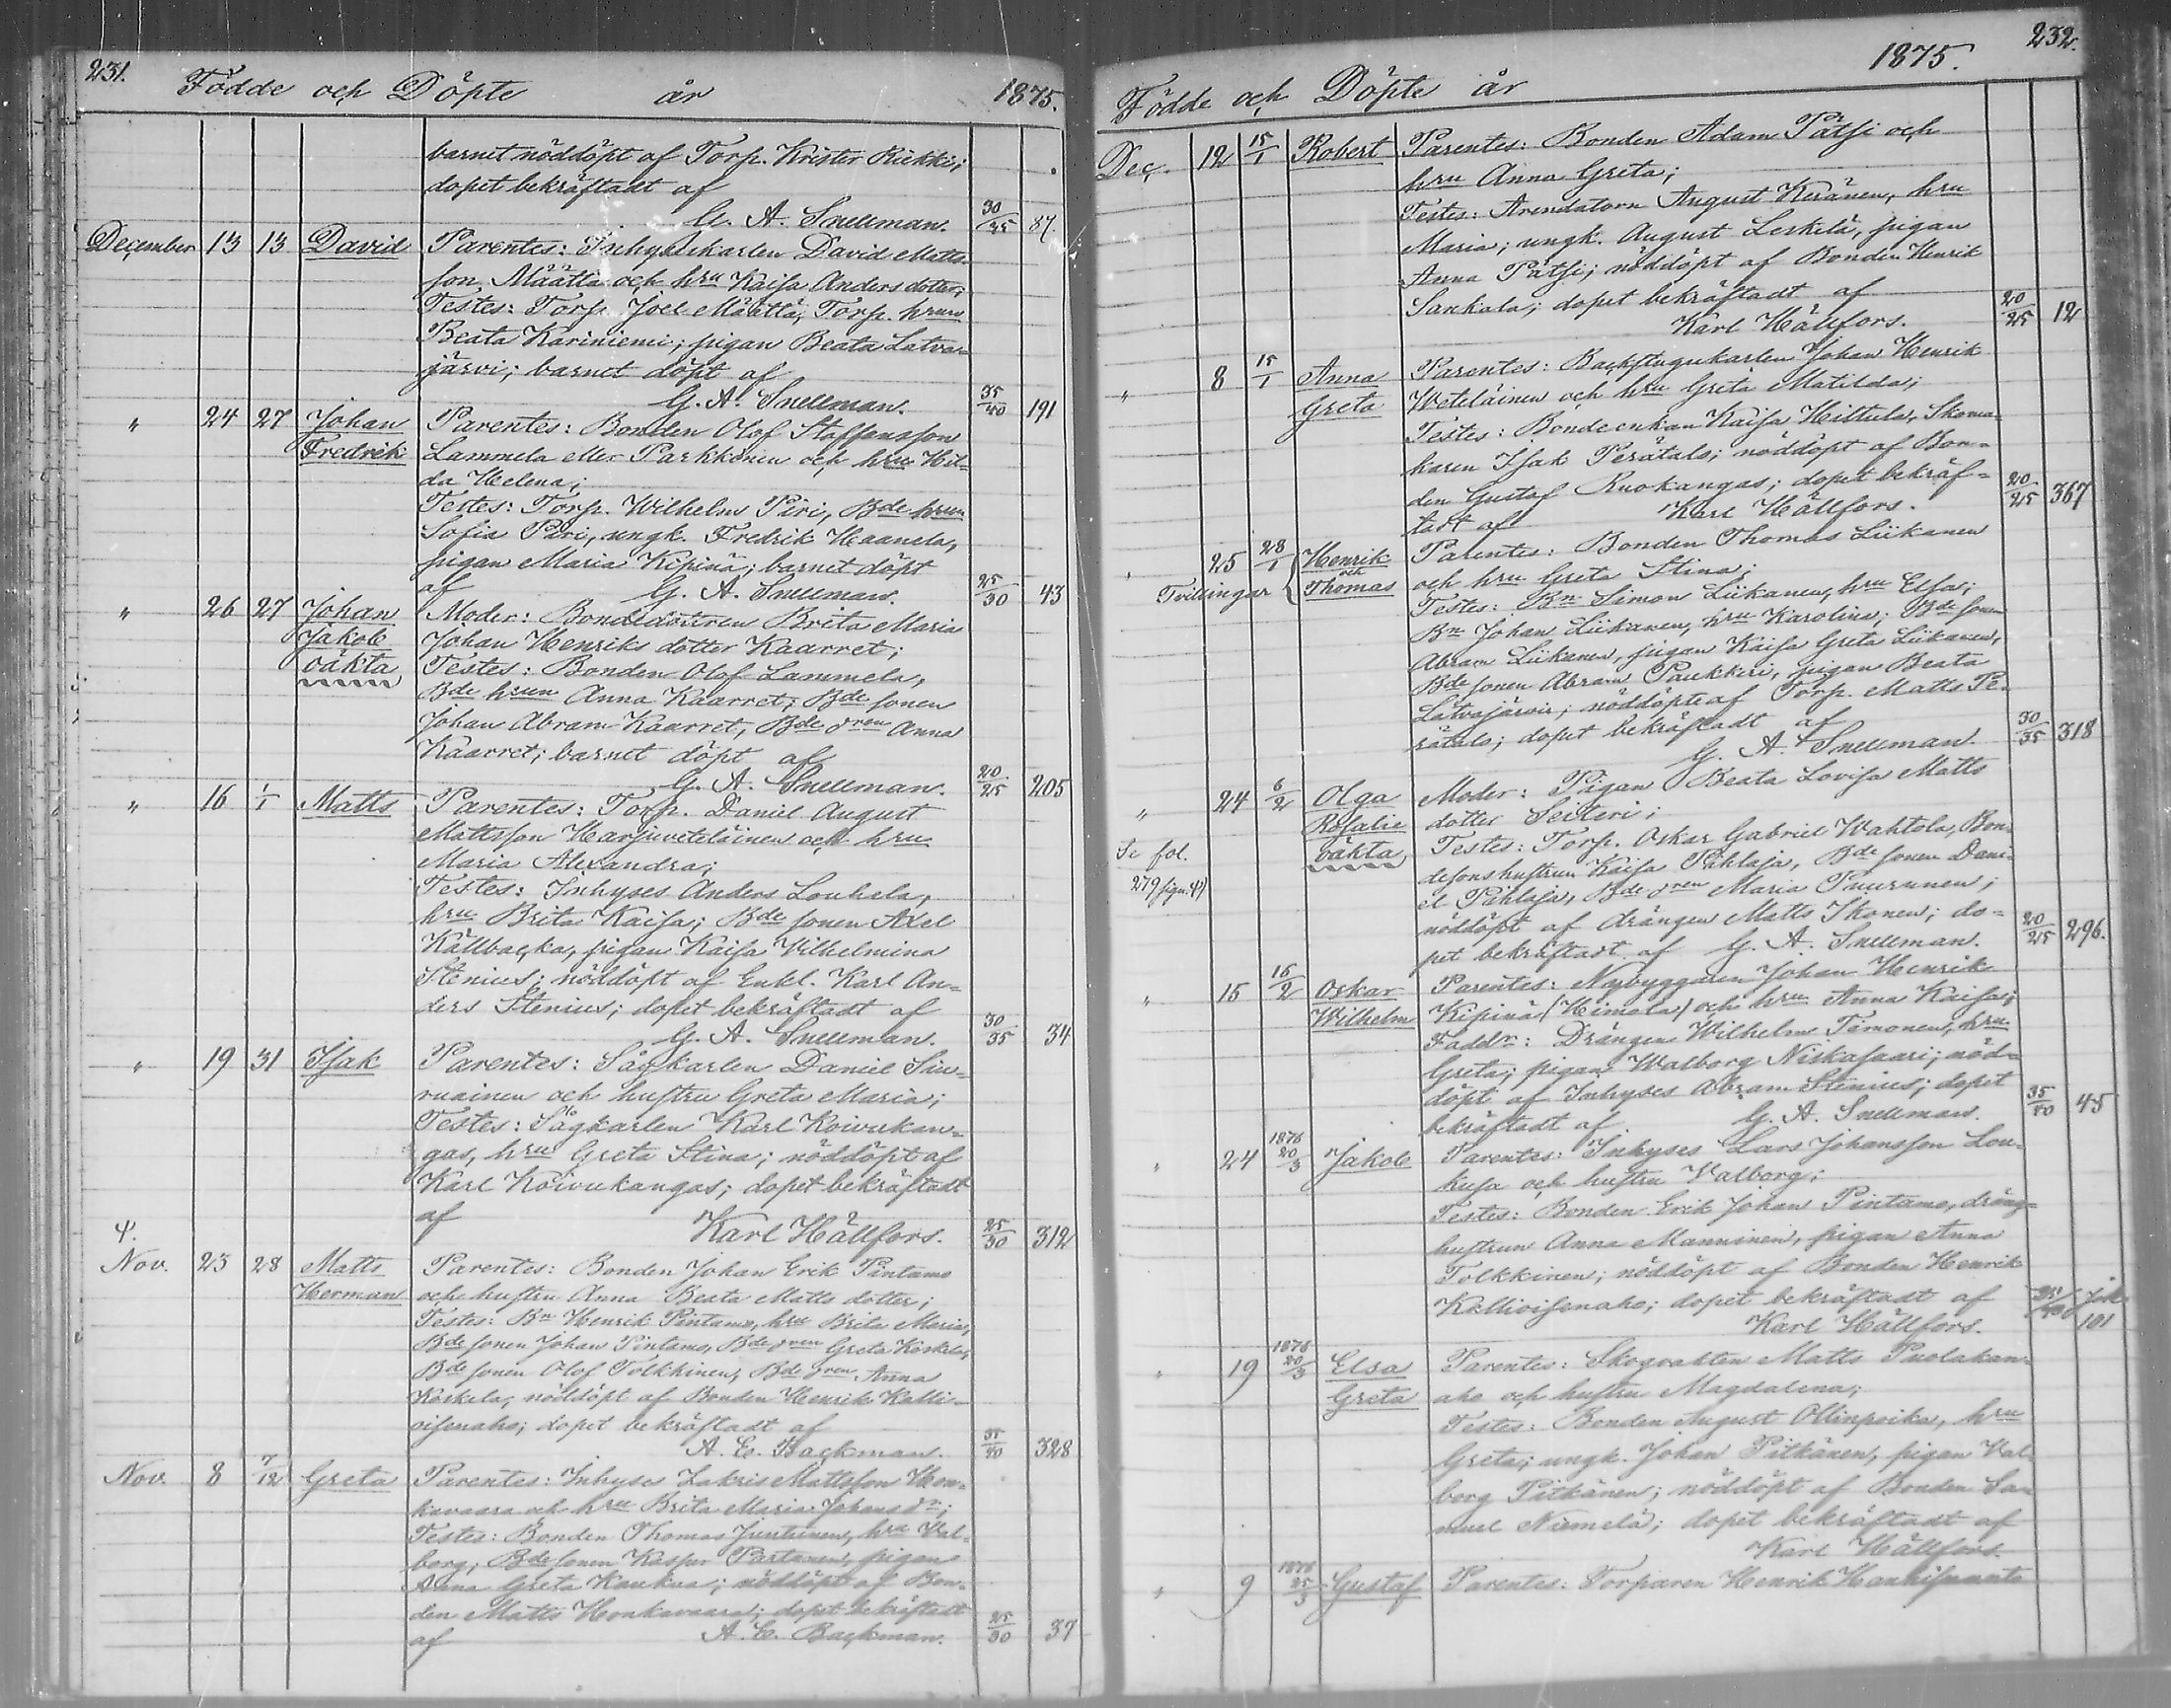 231.
Födde och Döpte år 1875.
barnet nöddöpt af Torp. Krister Riekki;
dopet bekräftadt af
G. A. Snellman. 30/35 87.
December 13 13 David Parentes: Inhyseskarlen David Matts-
son Määttä och hru Kaisa Andersdotter;
Testes: Torp. Joel Määttä, Torp. hrun
Beata Kariniemi; pigan Beata Latva-
järvi; barnet döpt af
G. A. Snellman. 35/40 191
" 24 27 Johan Parentes: Bonden Olof Staffansson
Fredrik Lammela eller Parkkonen och hru Hil-
da Helena;
Testes: Torp. Wilhelm Piri, Bde hrun
Sofia Piri, ungk. Fredrik Haanela,
pigan Maria Kipinä; barnet döpt
af G. A. Snellman. 25/30 43
" 26 27 Johan Moder: Bondedottren Brita Maria
Jakob Johan Henriks dotter Kaarret;
oäkta Testes: Bonden Olof Lammela,
Bde hrun Anna Kaarret; Bde sonen
Johan Abram Kaarret, Bde dren Anna
Kaarret; barnet döpt af
G. A. Snellman. 20/25 205
" 16 1/1 Matts Parentes: Torp. Daniel August
Mattsson Harjuveteläinen och hru
Maria Alexandra;
Testes: Inhyses Anders Loukela,
hru Brita Kaisa; Bde sonen Axel
Källbacka, pigan Kaisa Vilhelmina
Stenius; nöddöpt af Enkl. Karl An-
ders Stenius; dopet bekräftadt af
G. A. Snellman. 30/35 34
" 19 31 Isak Parentes: Sågkarlen Daniel Sir-
ruainen och hustru Greta Maria;
Testes: Sågkarlen Karl Koivukan-
gas, hru Greta Stina; nöddöpt af
Karl Koivukangas; dopet bekräftadt
af Karl Hällfors. 25/30 312
Nov. 23 28 Matts Parentes: Bonden Johan Erik Pintamo
Herman och hustru Anna Beata Matts dotter;
Testes: Bn Henrik Pintamo, hru Brita Maria,
Bde sonen Johan Pintamo, Bde dren Greta Koskela,
Bde sonen Olof Tolkkinen, Bde dren Anna
Koskela, nöddöpt af Bonden Henrik Kalli-
oisenaho; dopet bekräftadt af
A. E. Backman. 35/40 328
Nov. 8 7/12 Greta Parentes: Inhyse Zakris Mattsson Hon-
kavaara och hru Brita Maria Johans dr;
Testes: Bonden Thomas Juntunen, hru Val-
borg; Bde sonen Kasper Partanen, pigan
Anna Greta Kaukua; nöddöpt af Bon-
den Matts Honkavaara; dopet bekräftadt
af A. E. Backman. 25/30 37
232.
Födde och Döpte år 1875.
Dec. 12 15/1 Robert Parentes: Bonden Adam Pätsi och
hru Anna Greta;
Testes: Arendatorn August Keränen, hru
Maria; ungk. August Leskelä, pigan
Anna Pätsi; nöddöpt af Bonden Henrik
Sankala; dopet bekräftadt af
Karl Hällfors. 20/25 12
" 8 15/1 Anna Parentes: Backstugukarlen Johan Henrik
Greta Weteläinen och hru Greta Matilda;
Testes: Bondeenkan Kaisa Hiltula, Skoma-
karen Isak Perätalo; nöddöpt af Bon-
den Gustaf Ruokangas; dopet bekräf-
tadt af Karl Hällfors. 20/25 367
" 25 28/1 Henrik Parentes: Bonden Thomas Liikanen
Tvillingar och Thomas och hru Greta Stina;
Testes: Bn Simon Liikanen, hru Elsa;
Bn Johan Liikanen, hru Karolina; Bde sonen
Abram Liikanen, pigan Kaisa Greta Liikanen,
Bde sonen Abram Paukkeri, pigan Beata
Latvajärvi; nöddöpte af Torp. Matts Pe-
rätalo; dopet bekräftadt af
G. A. Snellman. 30/35 318
" 24 6/2 Olga Moder: Pigan Beata Lovisa Matts
Rosalie dotter Seiteri;
Se fol. oäkta Testes: Torp. Oskar Gabriel Wahtola, Bon-
279 desonshustrun Kaisa Pihlaja, Bde sonen Dani-
el Pihlaja, Bde dren Maria Puurunen;
nöddöpt af drängen Matts Ikonen; do-
pet bekräftadt af G. A. Snellman. 20/25 296.
" 15 16/2 Oskar Parentes: Nybyggaren Johan Henrik
Wilhelm Kipinä (Heimola) och hru Anna Kaisa;
Faddr: Drängen Wilhelm Timonen, hru
Greta; pigan Walborg Niskasaari; nöd-
döpt af Inhyses Abram Stenius; dopet
bekräftadt af G. A. Snellman. 35/40 45
" 24 1876 20/3 Jakob Parentes: Inhyses Lars Johansson Lou-
kusa och hustru Walborg;
Testes: Bonden Erik Johan Pintamo, dräng-
hustrun Anna Manninen, pigan Anna
Tolkkinen; nöddöpt af Bonden Henrik
Kallioisenaho; dopet bekräftadt af
Karl Hällfors. 101
" 19 1876 20/3 Elsa Parentes: Skogvakten Matts Puolakan-
Greta aho och hustru Magdalena;
Testes: Bonden August Ollinpoika, hru
Greta; ungk. Johan Pitkänen, pigan Val-
borg Pitkänen; nöddöpt af Bonden Sa-
muel Niemelä; dopet bekräftadt af
Karl Hällfors.
" 9 1876 25/3 Gustaf Parentes: Torparen Henrik Hanhisuanto